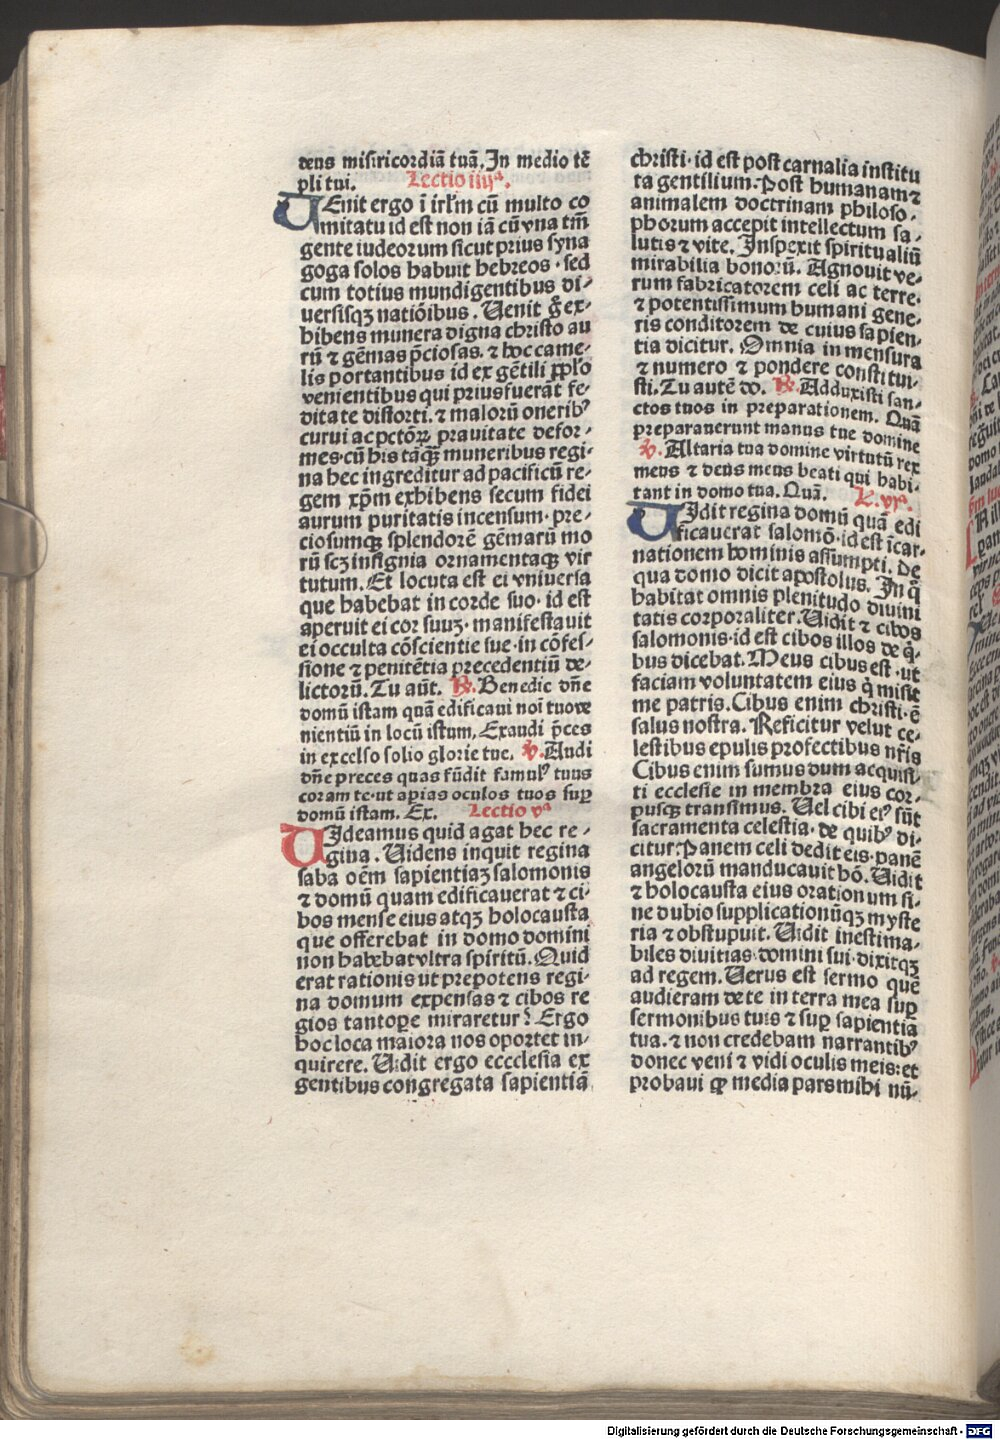 deus misericordiā tuā. In medio tē
pli tui. Lectio iiijᵃ.
UEnit ergo ī irl'm cū multo co
mitatu id est non iā cū vna tm̄
gente iudeorum sicut prius syna
goga solos habuit hebreos · sed
cum totius mundi gentibus di⸗
uersisqꝫ natiōibus. Uenit g̃ ex⸗
hibens munera digna christo au
rū ⁊ gēmas p̄ciosas. ⁊ hoc came⸗
lis portantibus id ex gētili ꝓpl'o
venientibus qui prius fuerāt fe⸗
ditate distorti. ⁊ malorū onerib⁹
curui ac pctōꝝ prauitate defor⸗
mes · cū his tāqꝫ muneribus regi⸗
na hec ingreditur ad pacificū re⸗
gem xp̄m exhibens secum fidei
aurum puritatis incensum · pre⸗
ciosumqꝫ splendorē gēmarū mo
rū scꝫ insignia ornamentaqꝫ vir
tutum. Et locuta est ei vniuersa
que habebat in corde suo · id est
aperuit ei cor suuꝫ · manifestauit
ei occulta cōscientie sue · in cōfes⸗
sione ⁊ penitētia precedentiū de⸗
lictorū. Tu aūt. ℞. Benedic dn̄e
domū istam quā edificaui noī tuo ve
nientiū in locū istum, Exaudi p̄ces
in excelso solio glorie tue. ℣. Audi
dn̄e preces quas fūdit famul⁹ tuus
coram te · ut apias oculos tuos suꝑ
domū istam. Ex. Lectio vᵃ
UIdeamus quid agat hec re⸗
gina. Uidens inquit regina
saba oēm sapientiaꝫ salomonis
⁊ domū quam edificauerat ⁊ ci⸗
bos mense eius atqꝫ holocausta
que offerebat in domo domini
non habebat vltra spiritū. Quid
erat rationis ut prepotens regi⸗
na domum expensas ⁊ cibos re
gios tantoꝑe miraretur? Ergo
hoc loca maiora nos oportet in⸗
quirere. Uidit ergo eccclesia ex
gentibus congregata sapientiā
christi · id est post carnalia institu
ta gentilium. Post humanam ⁊
animalem doctrinam philoso⸗
phorum accepit intellectum sa⸗
lutis ⁊ vite. Inspexit spiritualiū
mirabilia bonorū. Agnouit ve⸗
rum fabricatorem celi ac terre.
⁊ potentissimum humani gene⸗
ris conditorem de cuius sapien⸗
tia dicitur. Omnia in mensura
⁊ numero ⁊ pondere constitui⸗
sti. Tu autē do. ℞. Adduxisti san⸗
ctos tuos in preparationem. Quā
preparauerunt manus tue domine
℣. Altaria tua domine virtutū rex
meus ⁊ deus meus beati qui habi⸗
tant in domo tua. Quā. L. vjᵃ.
UIdit regina domū quā edi
ficauerat salomō · id est īcar⸗
nationem hominis assumpti. De
qua domo dicit apostolus. In q̄
habitat omnis plenitudo diuini
tatis corporaliter. Uidit ⁊ cibos
salomonis · id est cibos illos de q̄⸗
bus dicebat. Meus cibus est · ut
faciam voluntatem eius q̄ misit
me patris. Cibus enim christi · ē
salus nostra. Reficitur velut ce⸗
lestibus epulis profectibus nr̄is
Cibus enim sumus dum acquisi⸗
ti ecclesie in membra eius cor⸗
pusqꝫ transimus. Uel cibi ei⁹ sūt
sacramenta celestia · de quib⁹ di⸗
citur. Panem celi dedit eis · panē
angelorū manducauit hō. Uidit
⁊ holocausta eius orationum si⸗
ne dubio supplicationūqꝫ myste
ria ⁊ obstupuit. Uidit inestima⸗
biles diuitias domini sui · dixitqꝫ
ad regem. Uerus est sermo quē
audieram de te in terra mea suꝑ
sermonibus tuis ⁊ suꝑ sapientia
tua. ⁊ non credebam narrantib⁹
donec veni ⁊ vidi oculis meis: et
probaui ꝙ media pars mihi nū⸗
Digitalisierung gefördert durch die Deutsche Forschungsgemeinschaft - DFG